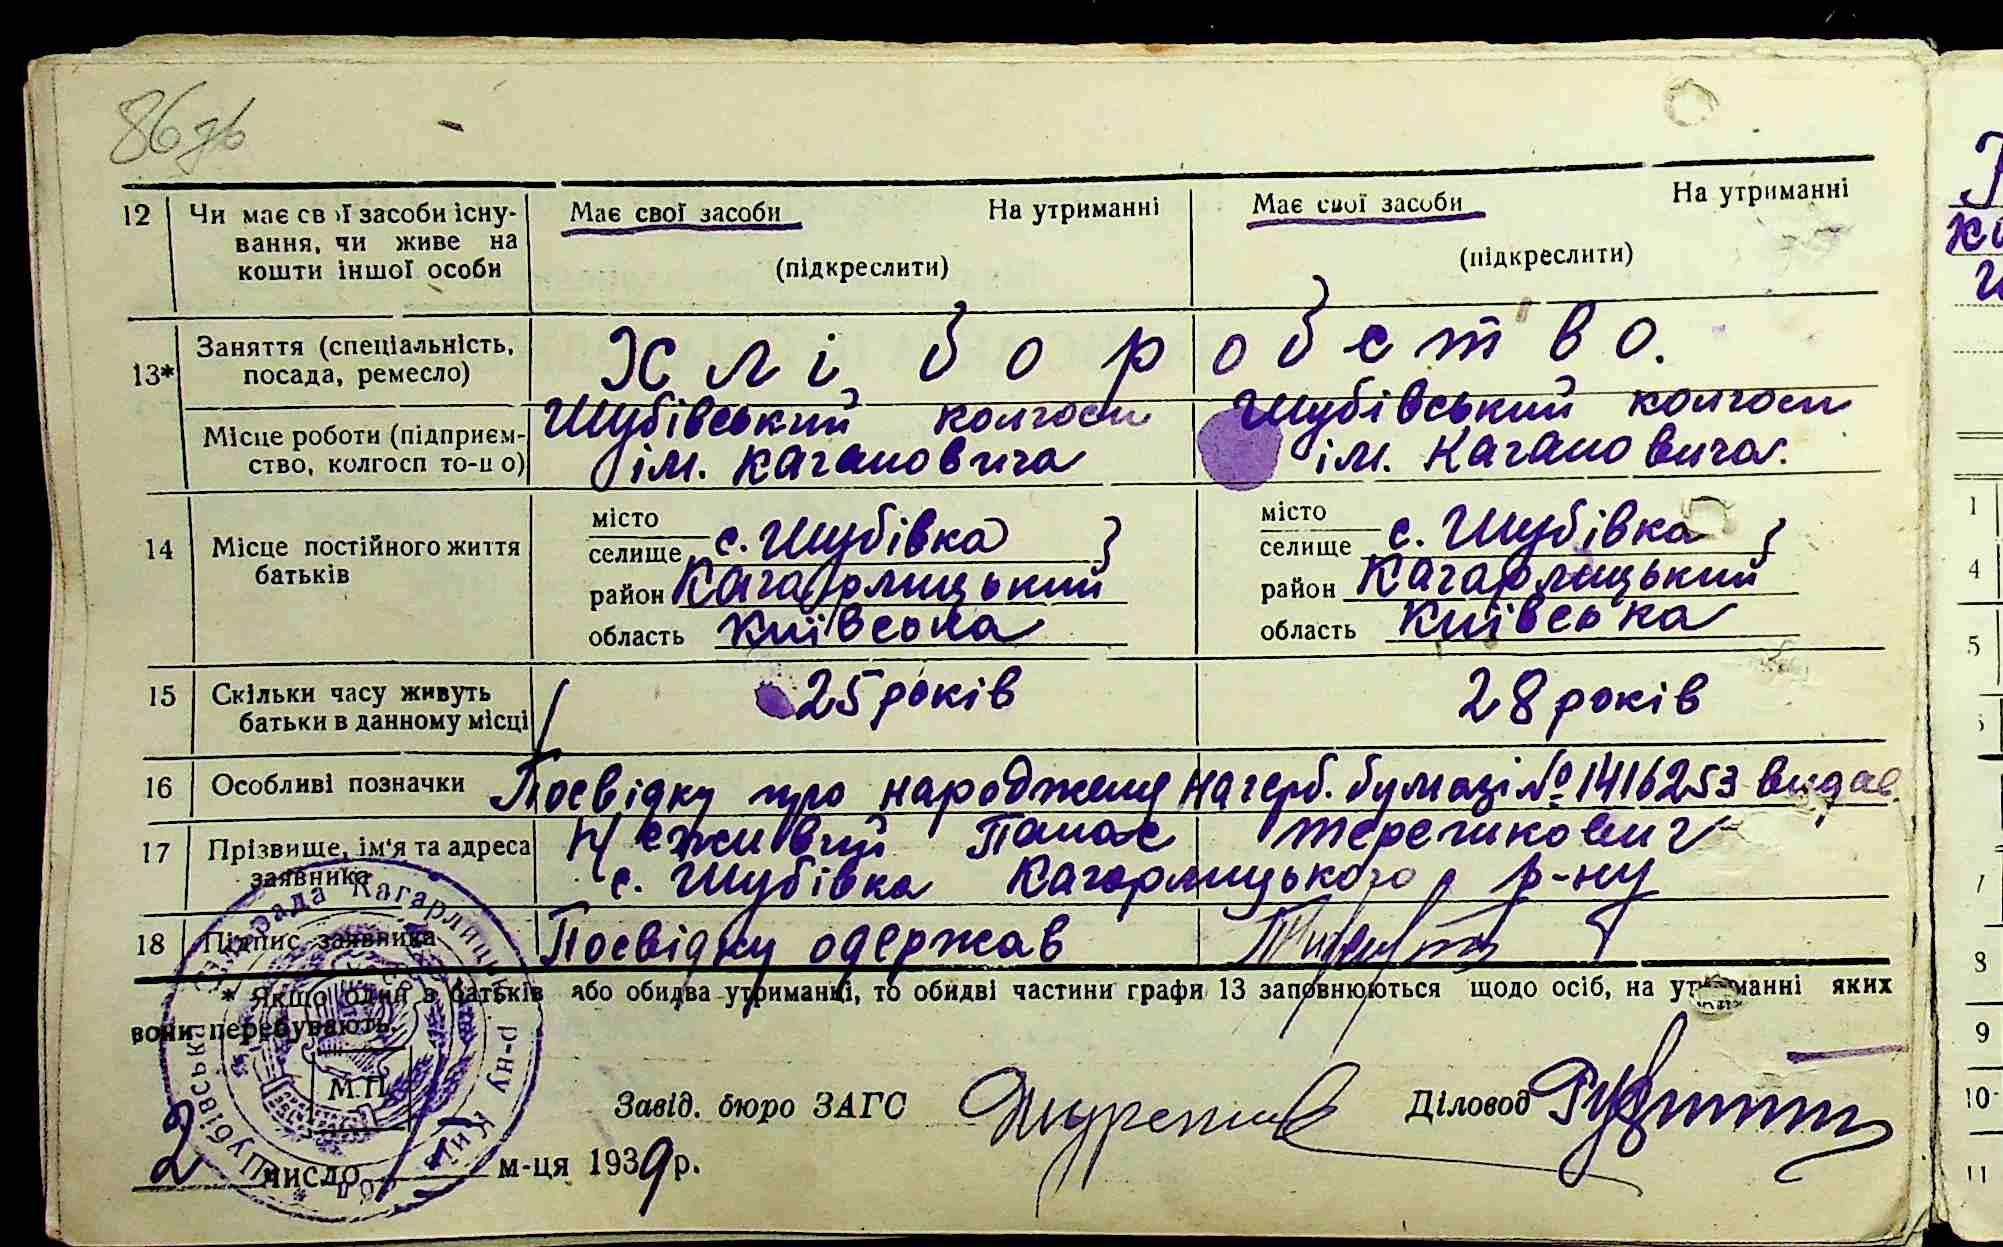 86 зв
12 Чи має свої засоби існу- Має свої засоби На утриманні Має свої засоби На утриманні
вання, чи живе на
кошти іншої особи (підкреслити) (підкреслити)
13* Заняття (спеціальність, Хліборобство.
посада, ремесло)
Місце роботи (підприєм- Шубівський колгосп Шубівський колгосп
ство, колгосп то-що) ім. Кагановича ім. Кагановича.
14 Місце постійного життя місто місто
батьків селище с. Шубівка селище с. Шубівка
район Кагарлицький район Кагарлицький
область Київська область Київська
15 Скільки часу живуть 25 років 28 років
батьки в данному місці
16 Особливі позначки Посвідку про народження на герб. бумазі № 1416253 видав.
17 Прізвище, ім'я та адреса Неживий Панас
заявника с. Шубівка Кагарлицького р-ну
18 Підпис заявника Посвідку одержав
* Якщо один з батьків або обидва утриманці, то обидві частини графи 13 заповнюються щодо осіб, на утриманні яких
вони перебувають.
М.П.
Завід. бюро ЗАГС Діловод
2 число м-ця 1939 р.
Шубівська сільрада Кагарлицьк. р-ну Київ
1
4
5
8
9
10
11